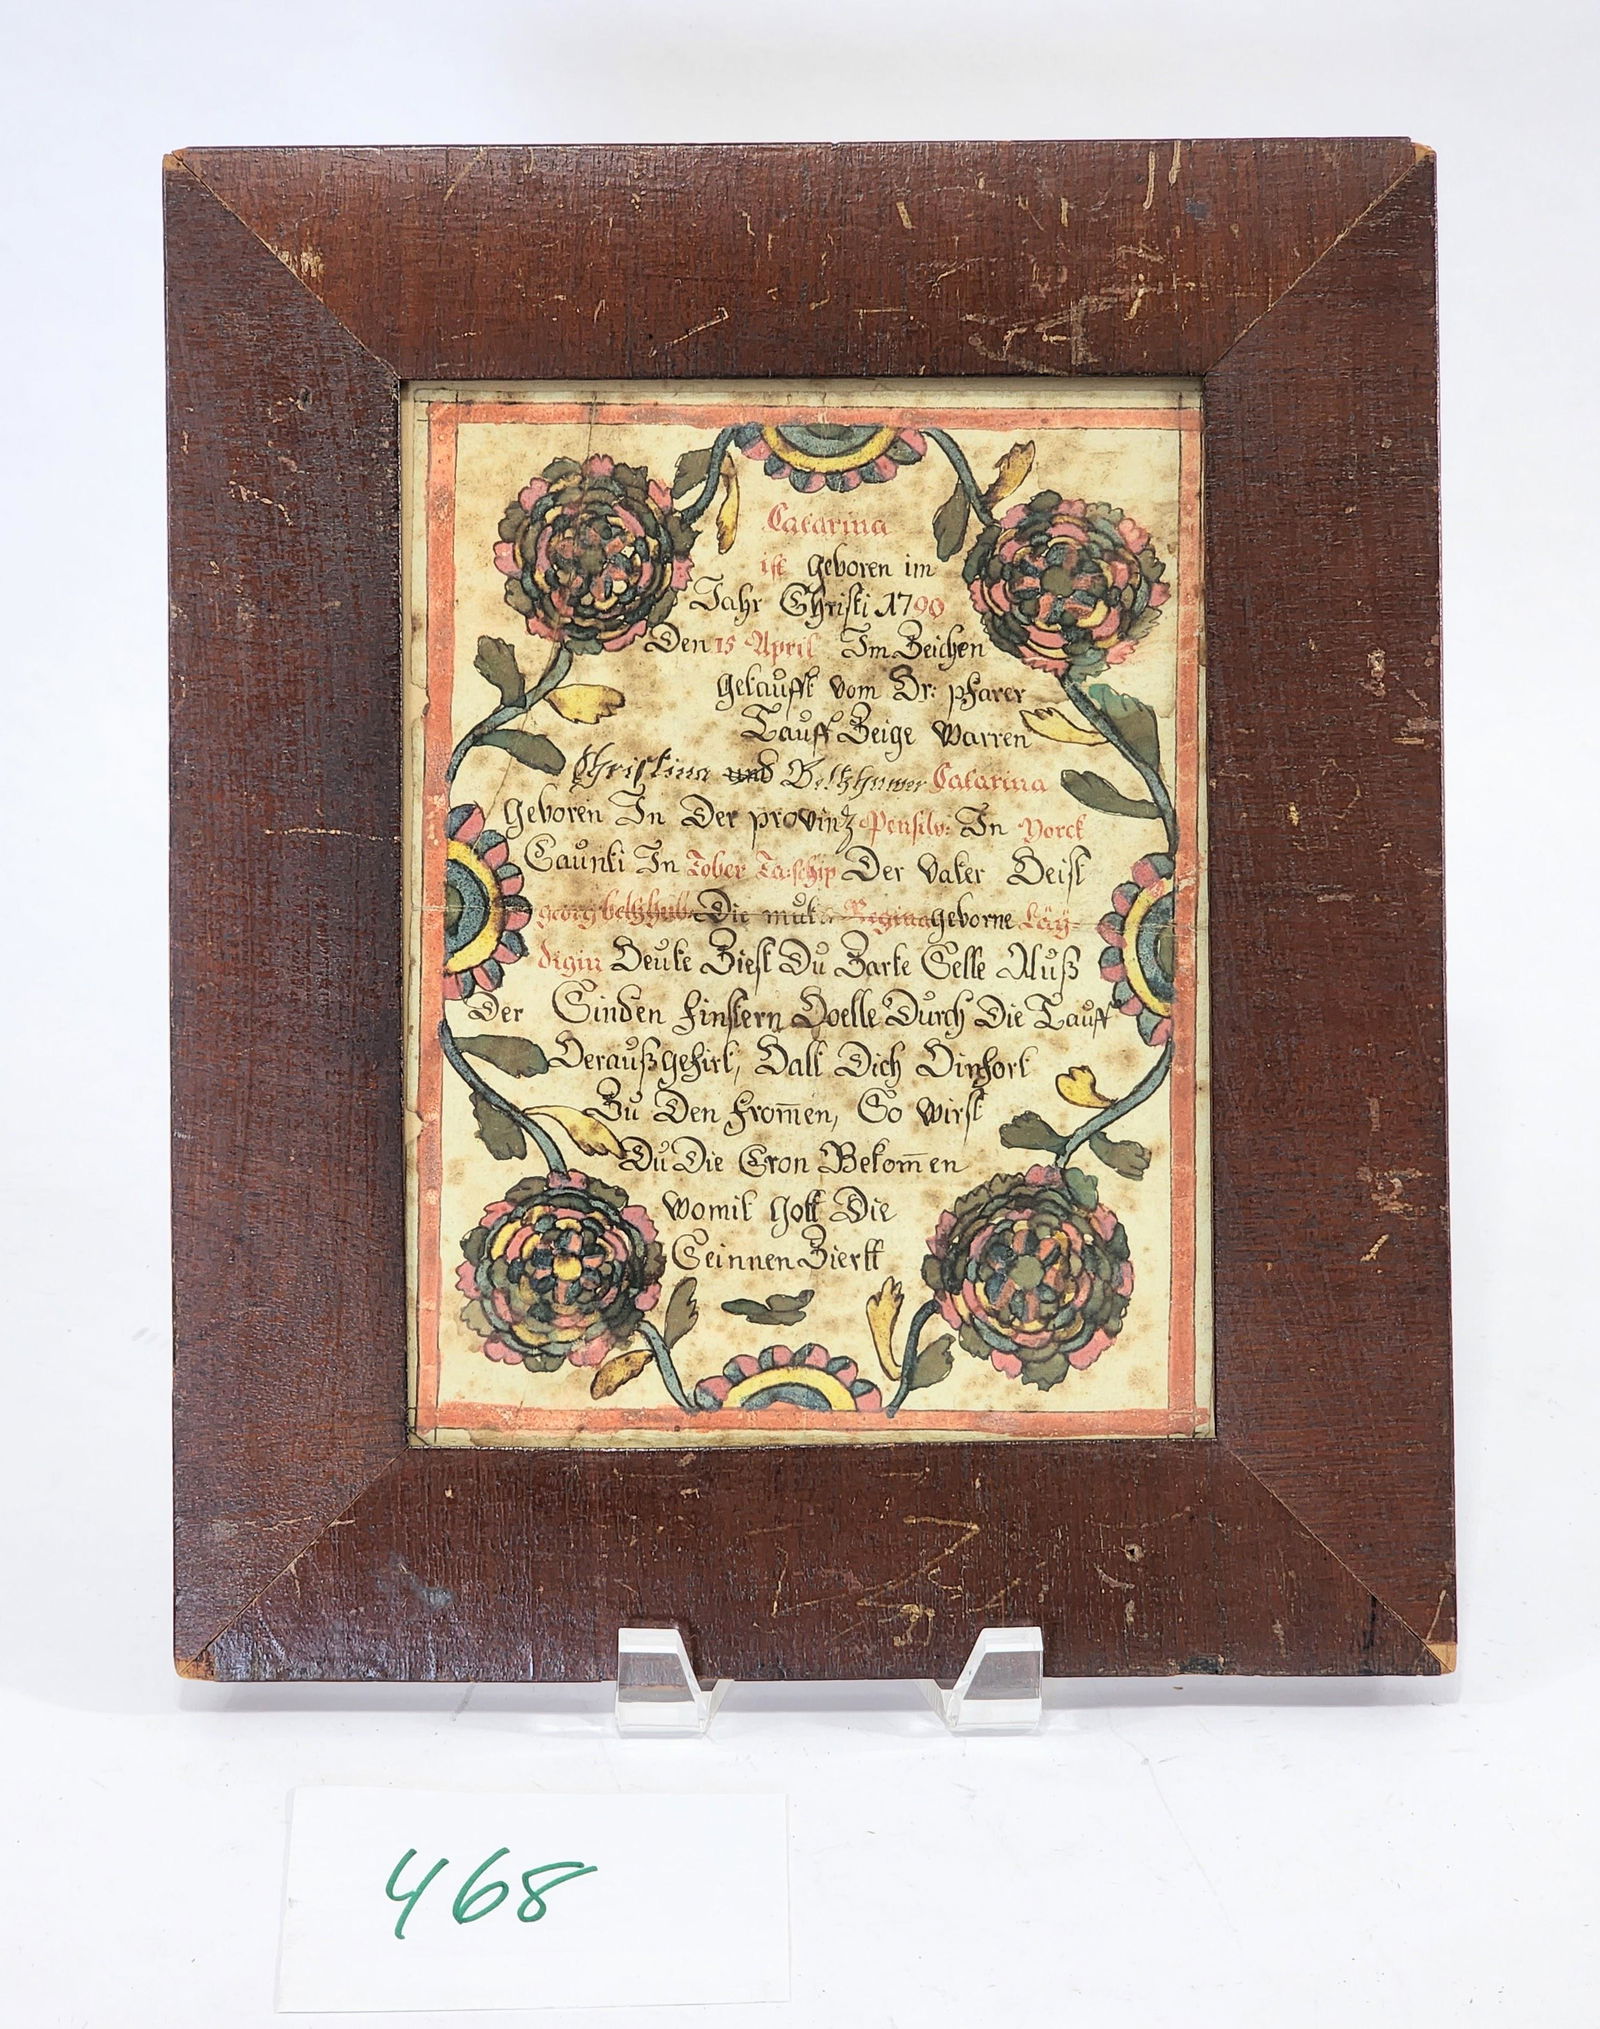 Catarina
ist geboren im
Jahr Christi 1790
Den 15 April Im Zeichen
getaufft vom Hr: pfarer
Tauff Zeige warren
Christina und Beltzhuwer Catarina
geboren In Der provintz Pensilv: In Yorck
Caunti In Dober Taschip Der vater Heist
georg beltzhub Die muter Regina geborne Läy=
digin Heute Ziest Du Zarte Selle Auß
Der Sinden finstern Hoelle Durch Die Tauff
Heraußgefirt, Halt Dich Hinfort
Zu Den from̅en, So wirst
Du Die Cron Bekom̅en
womit Gott Die
Seinnen Ziertt
468